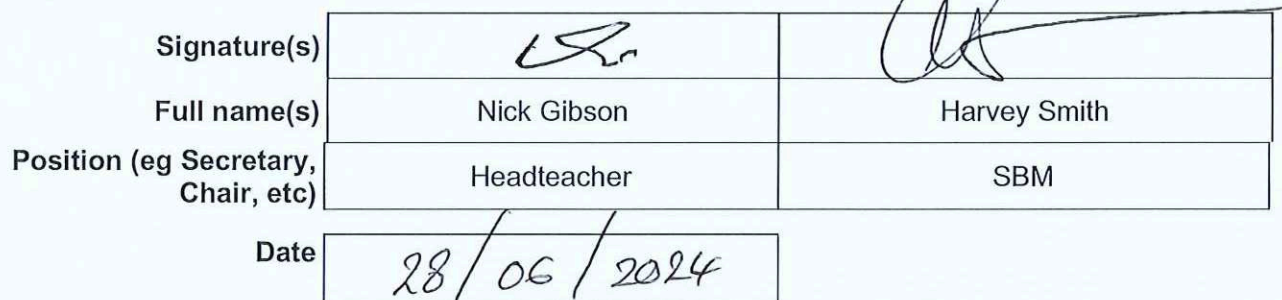 Signature(s)
Full name(s) Nick Gibson Harvey Smith
Position (eg Secretary,
Chair, etc) Headteacher SBM
Date 28/06/2024